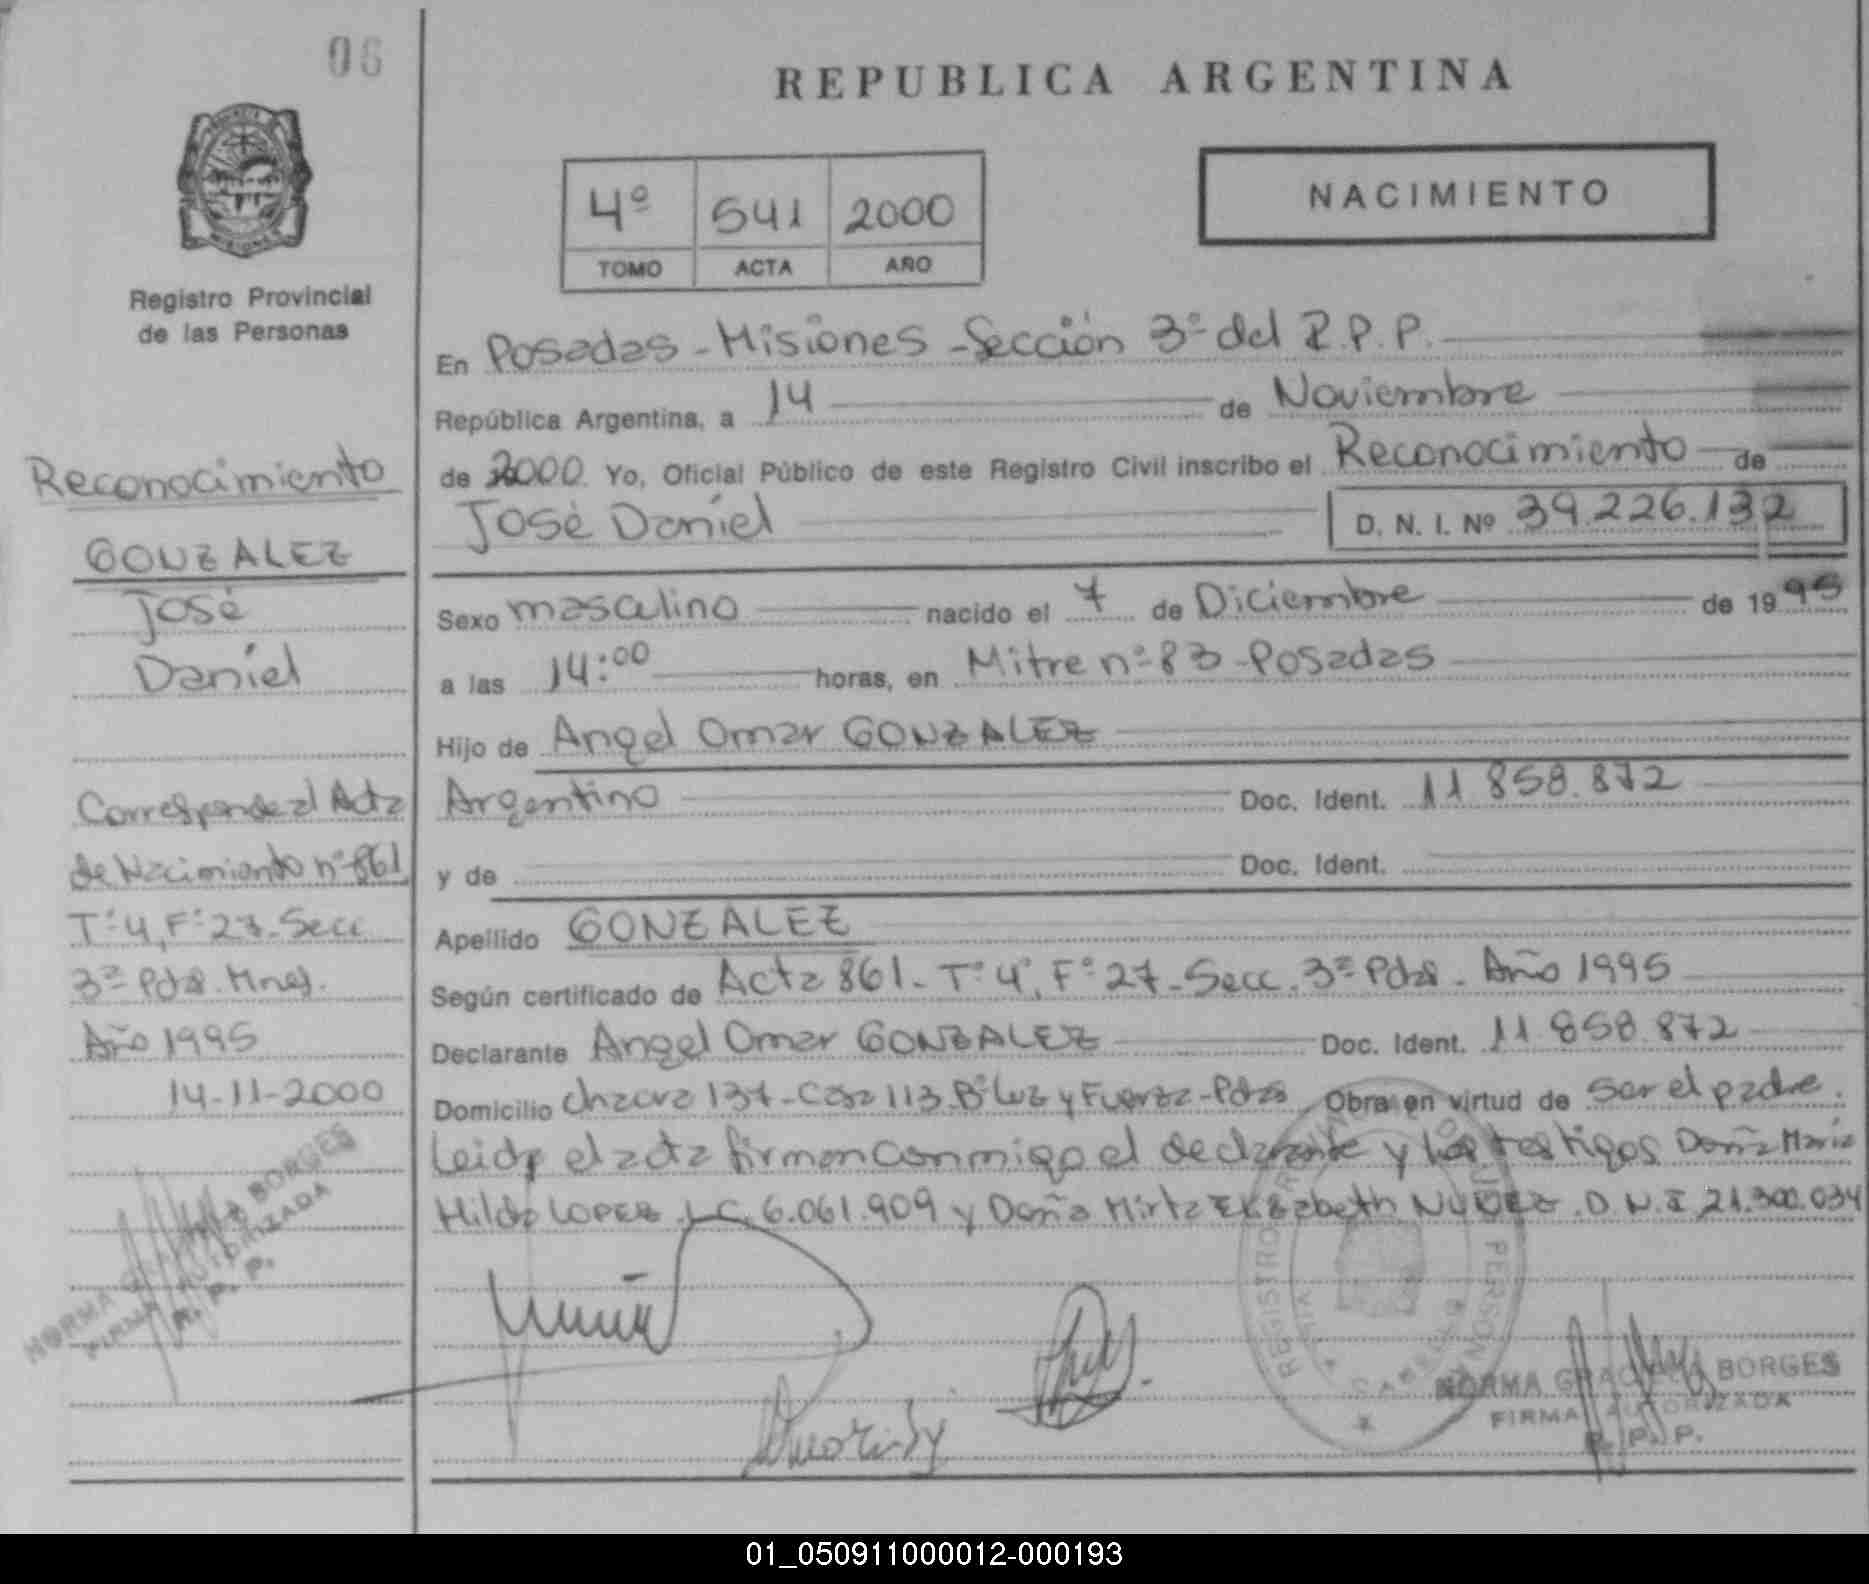 06
REPUBLICA ARGENTINA
NACIMIENTO
4º 541 2000
TOMO ACTA AÑO
Registro Provincial
de las Personas
Reconocimiento
GONZALEZ
José
Daniel
Corresponde al Acta
de Nacimiento nº 861
Tº 4, Fº 27. Secc
3ª Pdas. Mnes.
Año 1995
14-11-2000
NORMA BORGES
FIRMA AUTORIZADA
R. P. P.
En Posadas - Misiones - Sección 3º del R.P.P.
República Argentina, a 14 de Noviembre
de 2000. Yo, Oficial Público de este Registro Civil inscribo el Reconocimiento de
José Daniel D. N. I. Nº 39.226.132
Sexo masculino nacido el 7 de Diciembre de 1995
a las 14:00 horas, en Mitre nº 83 - Posadas
Hijo de Angel Omar GONZALEZ
Argentino Doc. Ident. 11.858.872
y de Doc. Ident.
Apellido GONZALEZ
Según certificado de Acta 861 - Tº 4º, Fº 27 - Secc. 3ª Pdas - Año 1995
Declarante Angel Omar GONZALEZ Doc. Ident. 11.858.872
Domicilio chacra 137 - Casa 113. Bº Luz y Fuerza - Pdas Obra en virtud de ser el padre.
Leida el acta firman conmigo el declarante y las testigos Doña Maria
Hilda LOPEZ L.C. 6.061.909 y Doña Mirta Elizabeth NUÑEZ. D.N.I. 21.300.034
REGISTRO
NORMA GRACIELA BORGES
FIRMA AUTORIZADA
R. P. P.
01_050911000012-000193